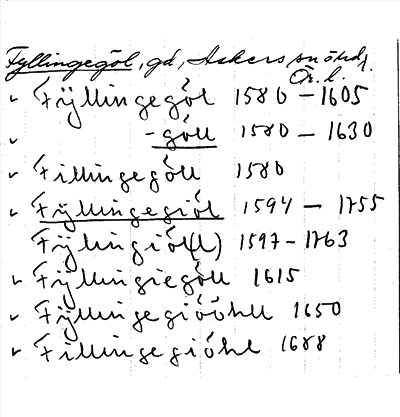 Fyllingegöl, gd, Askers sn ö hd,
Ör. l.
Fÿllingegöl 1580 – 1605
-göll 1580 – 1630
Fillingegöll 1580
Fÿllingegiöl 1594 – 1755
Fÿlingiöl(l) 1597 – 1763
Fÿllingiegöll 1615
Fÿllingegiööhll 1650
Fillingegiöhl 1688